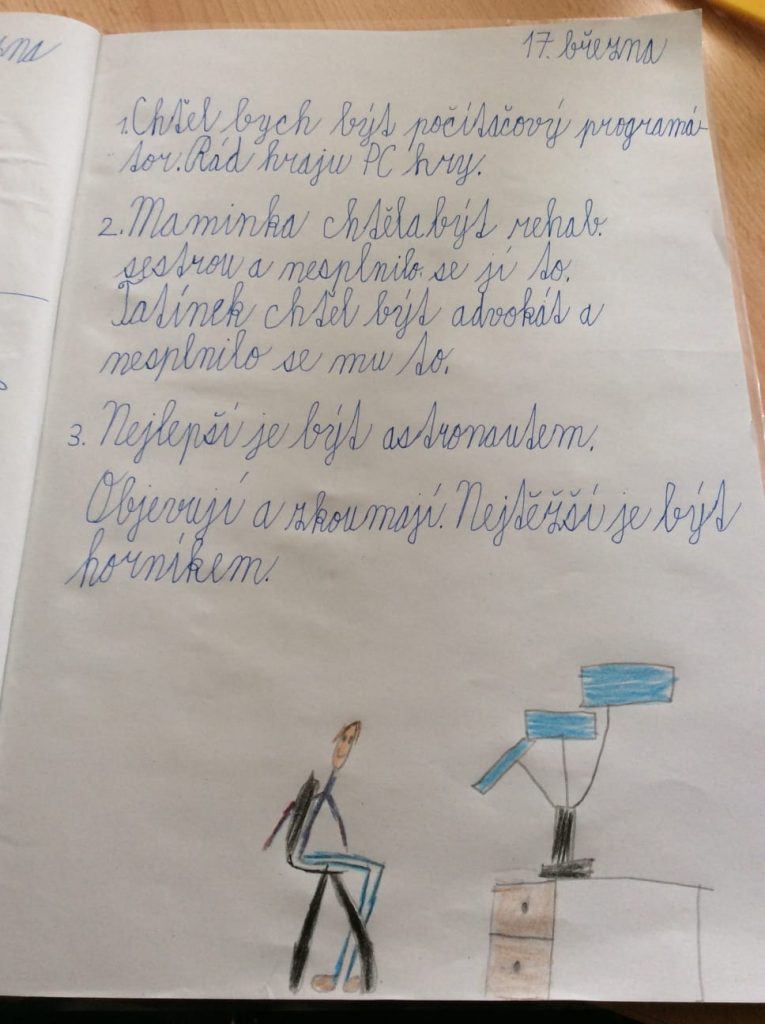 zna
17. března
1. Chtěl bych být počítačový programá-
tor. Rád hraju PC hry.
2. Maminka chtěla být rehab.
sestrou a nesplnilo se jí to.
Tatínek chtěl být advokát a
nesplnilo se mu to.
3. Nejlepší je být astronautem.
Objevují a zkoumají. Nejtěžší je být
horníkem.